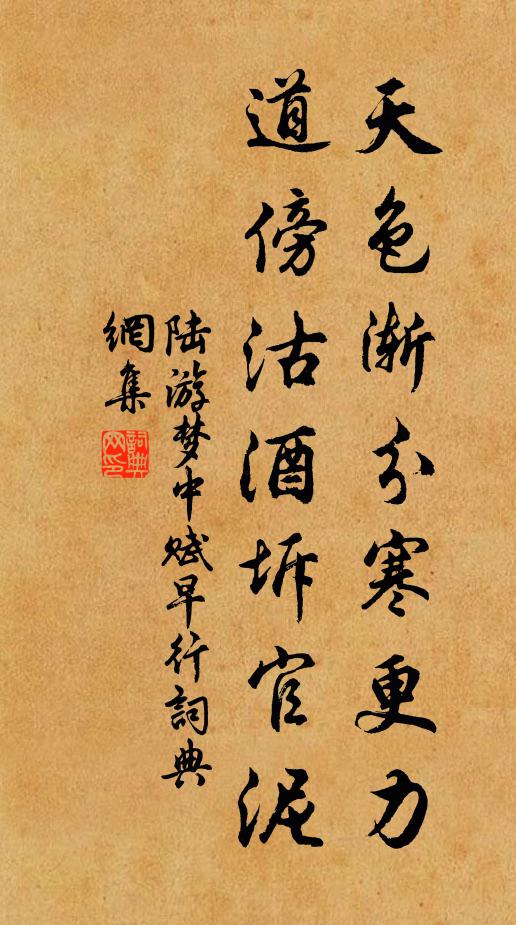 天色漸分寒更力
道傍沽酒坼官泥
陆游梦中赋早行詞典
網集
詞典
网印